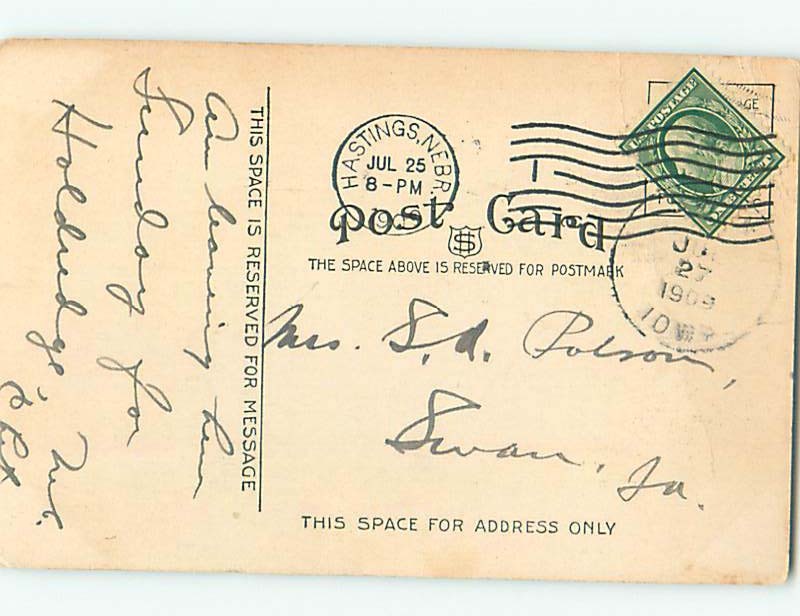 Am leaving here
Sunday for
Holdredge, Neb.
THIS SPACE IS RESERVED FOR MESSAGE
HASTINGS, NEBR.
JUL 25
8-PM
1909
U.S. POSTAGE
GE
Post Card
THE SPACE ABOVE IS RESERVED FOR POSTMARK
27
1909
IOWA
Mrs. S. A. Polson,
Swan, Ia.
THIS SPACE FOR ADDRESS ONLY